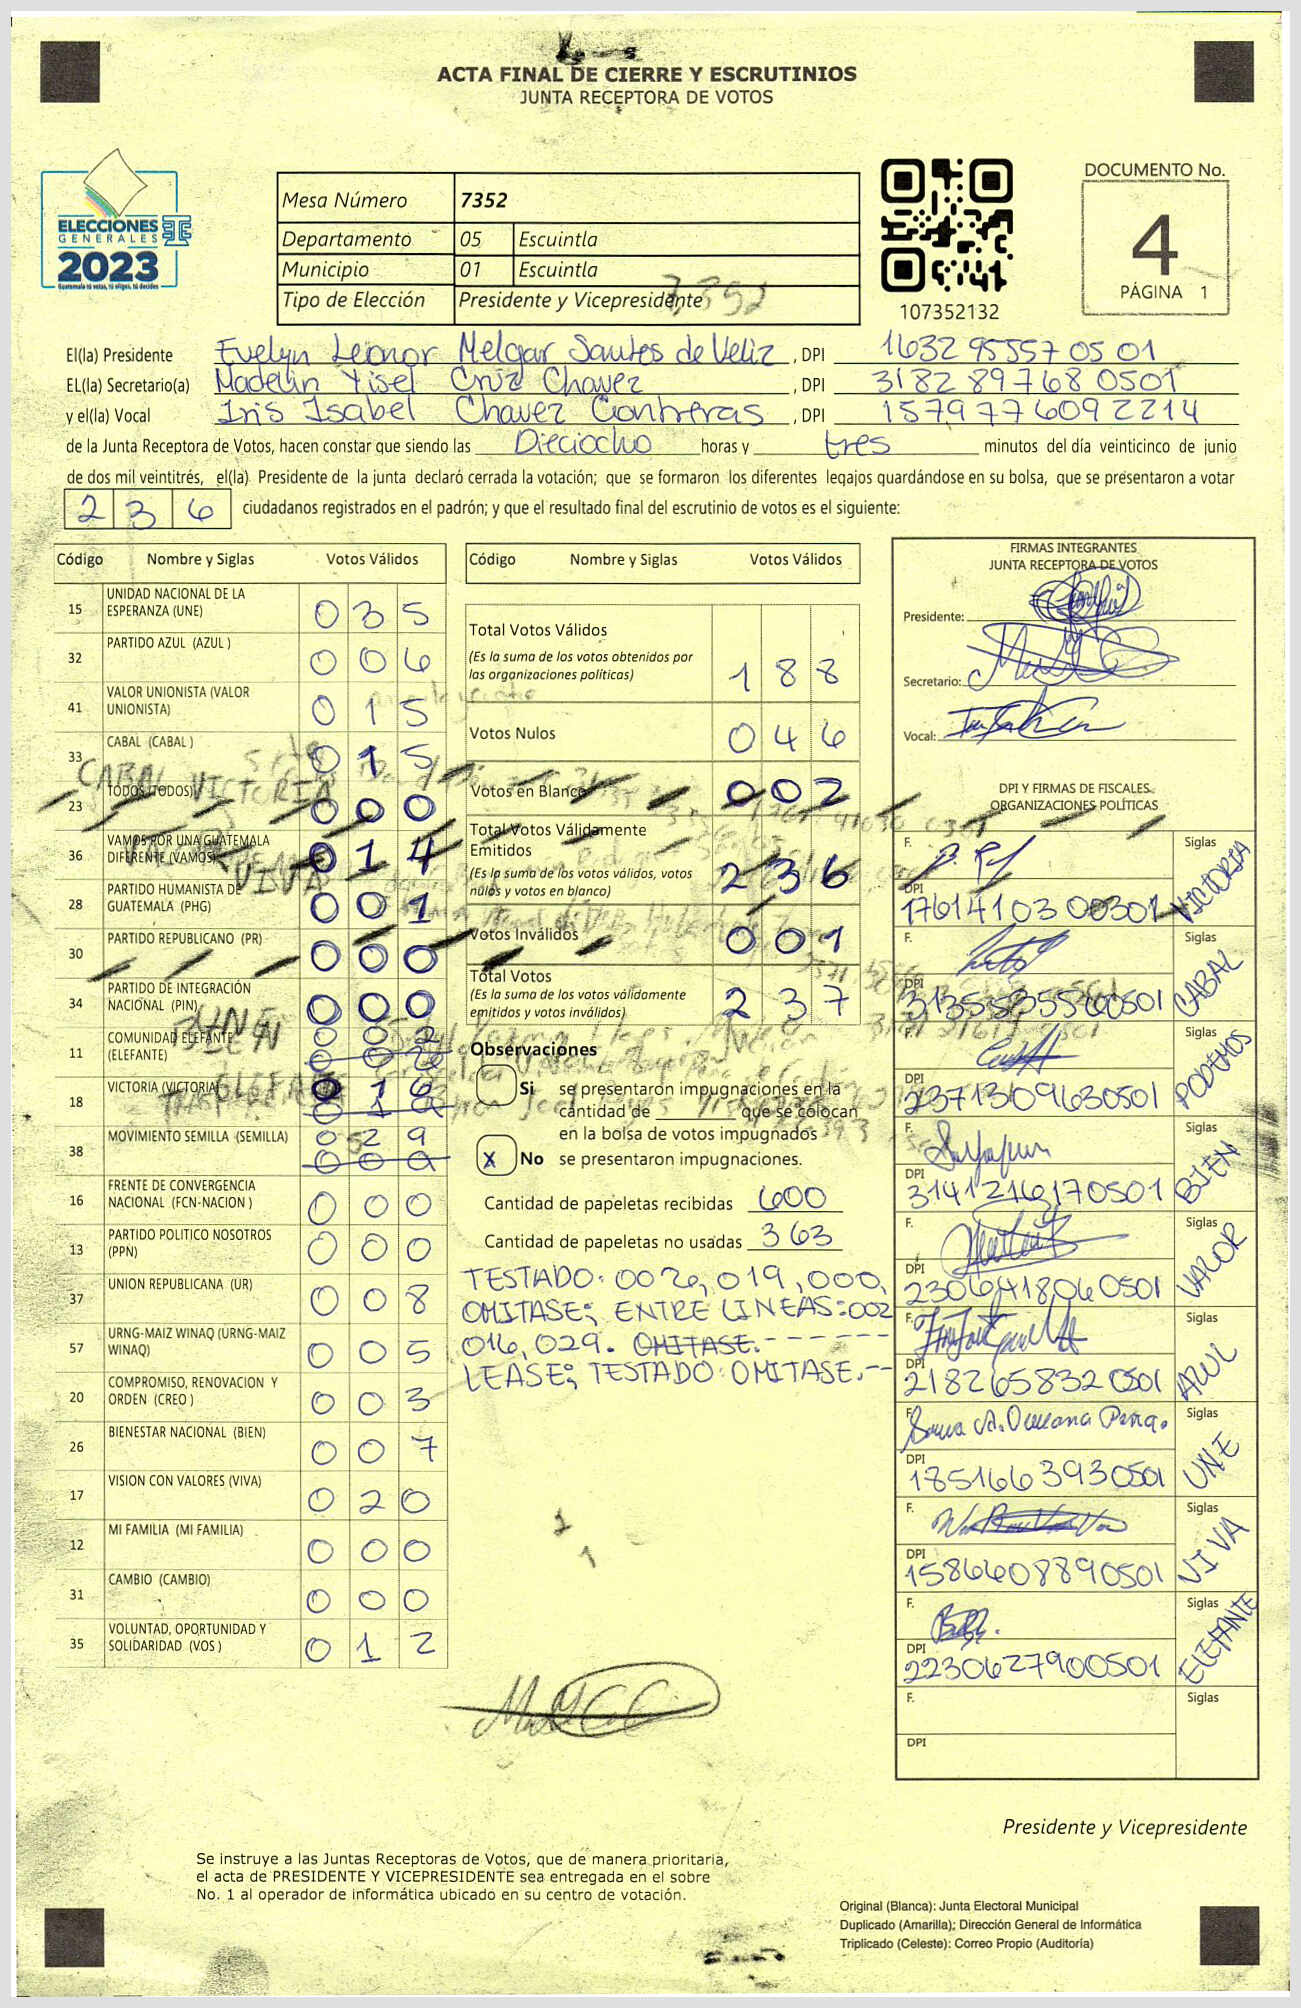 ACTA FINAL DE CIERRE Y ESCRUTINIOS
JUNTA RECEPTORA DE VOTOS
ELECCIONES
GENERALES
2023
Guatemala tú votas, tú eliges, tú decides
Mesa Número 7352
Departamento 05 Escuintla
Municipio 01 Escuintla
Tipo de Elección Presidente y Vicepresidente
7,352
107352132
DOCUMENTO No.
4
PÁGINA 1
El(la) Presidente Evelyn Leonor Melgar Santos de Veliz, DPI 1632 95557 05 01
EL(la) Secretario(a) Madelin Yisel Cruz Chavez, DPI 3182 89768 0501
y el(la) Vocal Iris Isabel Chavez Contreras, DPI 1579776092214
de la Junta Receptora de Votos, hacen constar que siendo las Dieciocho horas y tres minutos del día veinticinco de junio
de dos mil veintitrés, el(la) Presidente de la junta declaró cerrada la votación; que se formaron los diferentes legajos guardándose en su bolsa, que se presentaron a votar
236 ciudadanos registrados en el padrón; y que el resultado final del escrutinio de votos es el siguiente:
Código Nombre y Siglas Votos Válidos
15 UNIDAD NACIONAL DE LA ESPERANZA (UNE) 035
32 PARTIDO AZUL (AZUL ) 006
41 VALOR UNIONISTA (VALOR UNIONISTA) 015
33 CABAL (CABAL ) 015
23 TODOS (TODOS) 000
36 VAMOS POR UNA GUATEMALA DIFERENTE (VAMOS) 014
28 PARTIDO HUMANISTA DE GUATEMALA (PHG) 001
30 PARTIDO REPUBLICANO (PR) 000
34 PARTIDO DE INTEGRACIÓN NACIONAL (PIN) 000
11 COMUNIDAD ELEFANTE (ELEFANTE) 002
18 VICTORIA (VICTORIA) 016
38 MOVIMIENTO SEMILLA (SEMILLA) 029
16 FRENTE DE CONVERGENCIA NACIONAL (FCN-NACION ) 000
13 PARTIDO POLITICO NOSOTROS (PPN) 000
37 UNION REPUBLICANA (UR) 008
57 URNG-MAIZ WINAQ (URNG-MAIZ WINAQ) 005
20 COMPROMISO, RENOVACION Y ORDEN (CREO ) 003
26 BIENESTAR NACIONAL (BIEN) 007
17 VISION CON VALORES (VIVA) 020
12 MI FAMILIA (MI FAMILIA) 000
31 CAMBIO (CAMBIO) 000
35 VOLUNTAD, OPORTUNIDAD Y SOLIDARIDAD (VOS ) 012
CABAL VICTORIA
VIVA
Código Nombre y Siglas Votos Válidos
Total Votos Válidos
(Es la suma de los votos obtenidos por
las organizaciones políticas) 188
Votos Nulos 046
Votos en Blanco 002
Total Votos Válidamente
Emitidos
(Es la suma de los votos válidos, votos
nulos y votos en blanco) 236
Votos Inválidos 001
Total Votos
(Es la suma de los votos válidamente
emitidos y votos inválidos) 237
Observaciones
Si se presentaron impugnaciones en la
cantidad de ______ que se colocan
en la bolsa de votos impugnados
X No se presentaron impugnaciones.
Cantidad de papeletas recibidas 600
Cantidad de papeletas no usadas 363
TESTADO: 0026, 019, 000,
OMITASE; ENTRE LINEAS: 002
016, 029. OMITASE.------
LEASE; TESTADO: OMITASE.--
FIRMAS INTEGRANTES
JUNTA RECEPTORA DE VOTOS
Presidente:
Secretario:
Vocal:
DPI Y FIRMAS DE FISCALES
ORGANIZACIONES POLÍTICAS
F. Siglas VICTORIA
DPI 1761410300301
F. Siglas CABAL
DPI 3135583560501
F. Siglas PODEMOS
DPI 2371309630501
F. Siglas BIEN
DPI 3141216170501
F. Siglas VALOR
DPI 2306418060501
F. Siglas AZUL
DPI 2182658320501
F. Siglas UNE
DPI 1851663930501
F. Siglas VIVA
DPI 1586608890501
F. Siglas ELEFANTE
DPI 2230627900501
F. Siglas
DPI
Presidente y Vicepresidente
Se instruye a las Juntas Receptoras de Votos, que de manera prioritaria,
el acta de PRESIDENTE Y VICEPRESIDENTE sea entregada en el sobre
No. 1 al operador de informática ubicado en su centro de votación.
Original (Blanca): Junta Electoral Municipal
Duplicado (Amarilla); Dirección General de Informática
Triplicado (Celeste): Correo Propio (Auditoría)